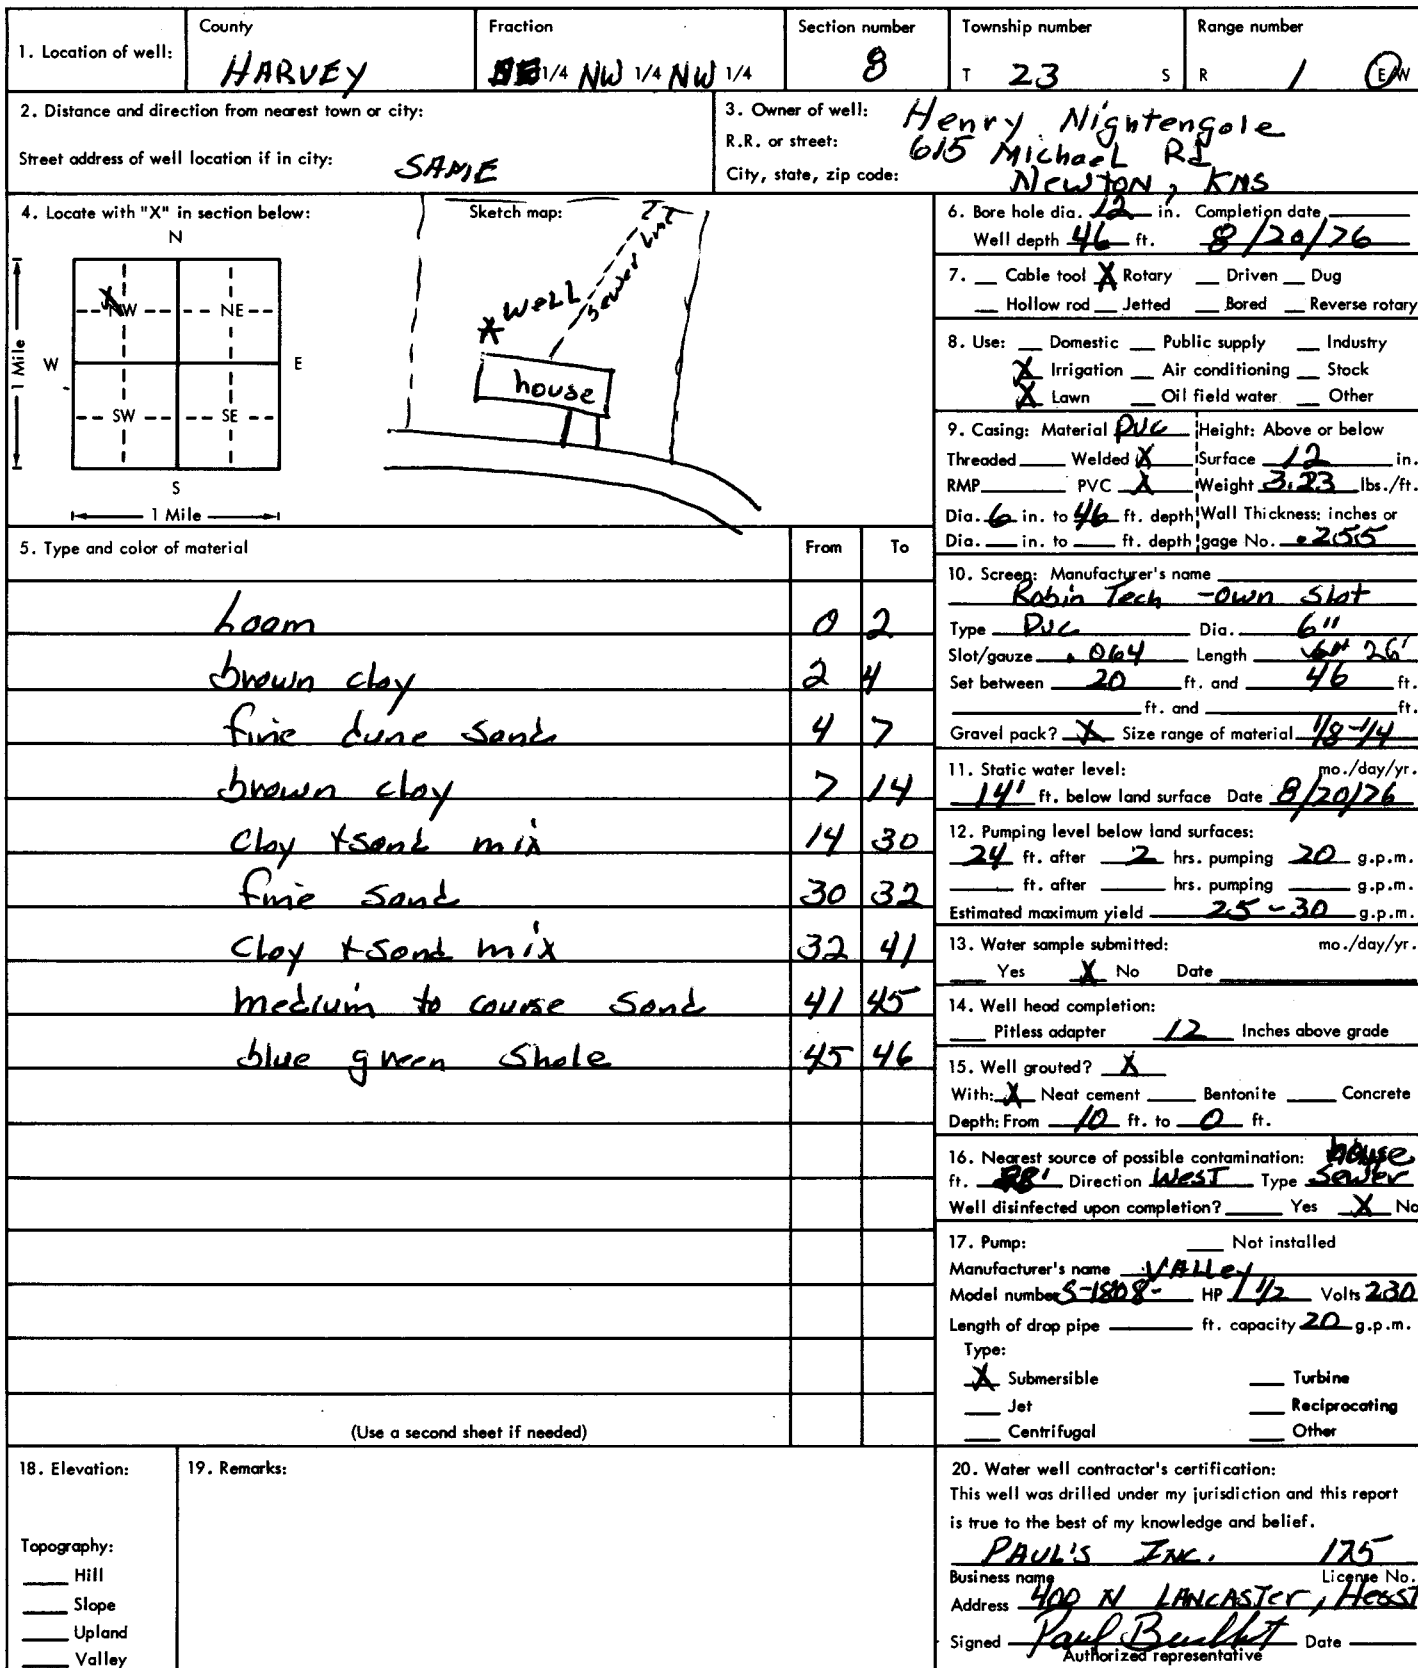 1. Location of well: County HARVEY Fraction 1/4 NW 1/4 NW 1/4 Section number 8 Township number T 23 S Range number R 1 E/W
2. Distance and direction from nearest town or city:
Street address of well location if in city: SAME
3. Owner of well: Henry Nightengale
R.R. or street: 615 Michael Rd
City, state, zip code: Newton, KNS
4. Locate with "X" in section below:
N
NW NE
W E
1 Mile
SW SE
S
1 Mile
Sketch map:
X well
sewer line
house
5. Type and color of material From To
Loam 0 2
brown clay 2 4
fine dune sand 4 7
brown clay 7 14
Clay + sand mix 14 30
fine sand 30 32
Clay + sand mix 32 41
medium to course sand 41 45
blue green shale 45 46
(Use a second sheet if needed)
6. Bore hole dia. 12 in. Completion date
Well depth 46 ft. 8/20/76
7. Cable tool X Rotary Driven Dug
Hollow rod Jetted Bored Reverse rotary
8. Use: Domestic Public supply Industry
X Irrigation Air conditioning Stock
X Lawn Oil field water Other
9. Casing: Material PVC Height: Above or below
Threaded Welded X Surface 12 in.
RMP PVC X Weight 3.23 lbs./ft.
Dia. 6 in. to 46 ft. depth Wall Thickness: inches or
Dia. in. to ft. depth gage No. .255
10. Screen: Manufacturer's name
Robin Tech - own slot
Type PVC Dia. 6"
Slot/gauze .064 Length 26'
Set between 20 ft. and 46 ft.
ft. and ft.
Gravel pack? X Size range of material 1/8-1/4
11. Static water level: mo./day/yr.
14' ft. below land surface Date 8/20/76
12. Pumping level below land surfaces:
24 ft. after 2 hrs. pumping 20 g.p.m.
ft. after hrs. pumping g.p.m.
Estimated maximum yield 25-30 g.p.m.
13. Water sample submitted: mo./day/yr.
Yes X No Date
14. Well head completion:
Pitless adapter 12 Inches above grade
15. Well grouted? X
With: X Neat cement Bentonite Concrete
Depth: From 10 ft. to 0 ft.
16. Nearest source of possible contamination: house
ft. Direction West Type Sewer
Well disinfected upon completion? Yes X No
17. Pump: Not installed
Manufacturer's name Valley
Model number S-1808- HP 1 1/2 Volts 230
Length of drop pipe ft. capacity 20 g.p.m.
Type:
X Submersible Turbine
Jet Reciprocating
Centrifugal Other
18. Elevation:
Topography:
Hill
Slope
Upland
Valley
19. Remarks:
20. Water well contractor's certification:
This well was drilled under my jurisdiction and this report
is true to the best of my knowledge and belief.
PAUL'S INC. 175
Business name License No.
Address 400 N LANCASTER, Hesst
Signed Paul Date
Authorized representative